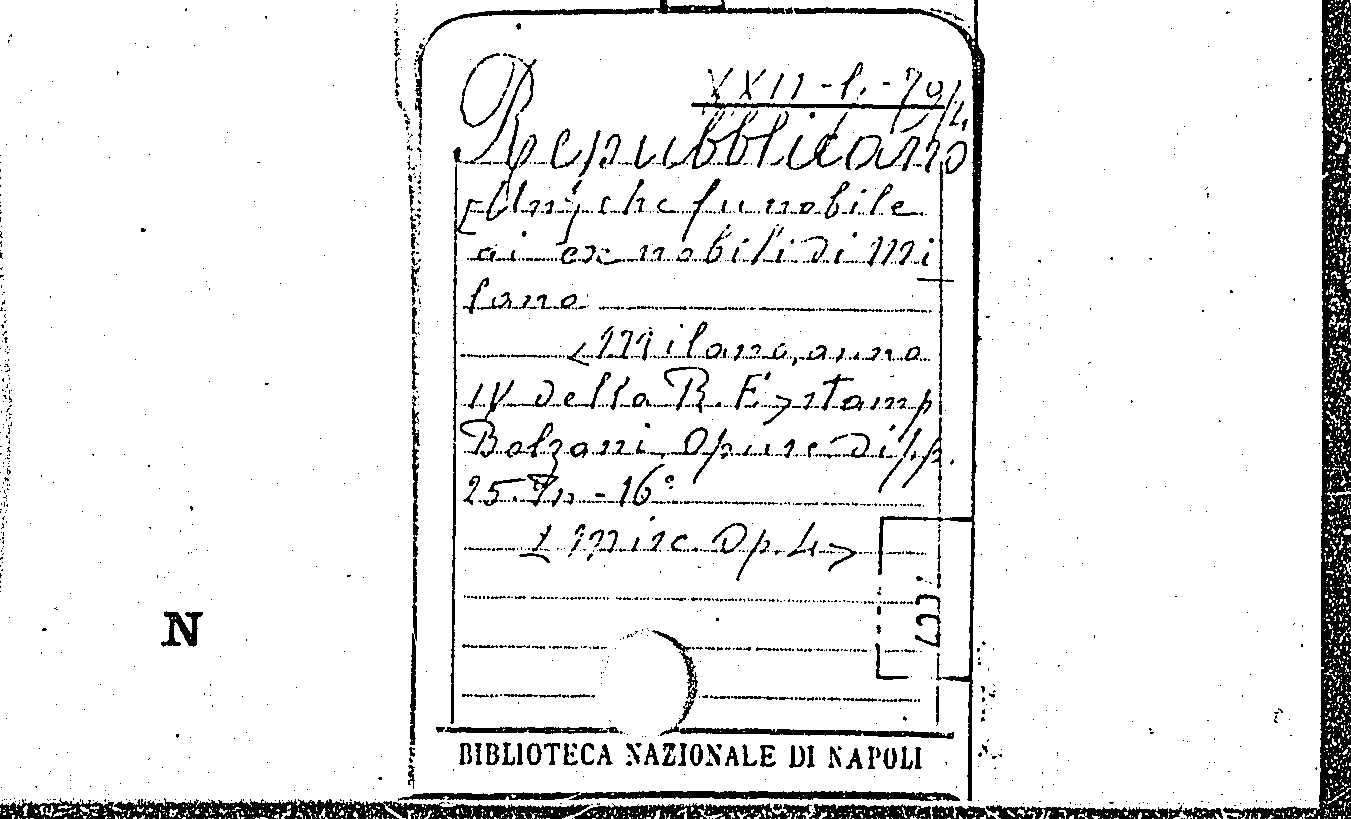 XXII-b.-70/4.
Repubblicano
[Un] che fu nobile
ai ex nobili di Mi
lano
<Milano, anno
IV della R. F.> stamp
Bolzani, Opusc. di pp.
25. In - 16°
(misc. Op. 4>
N
BIBLIOTECA NAZIONALE DI NAPOLI